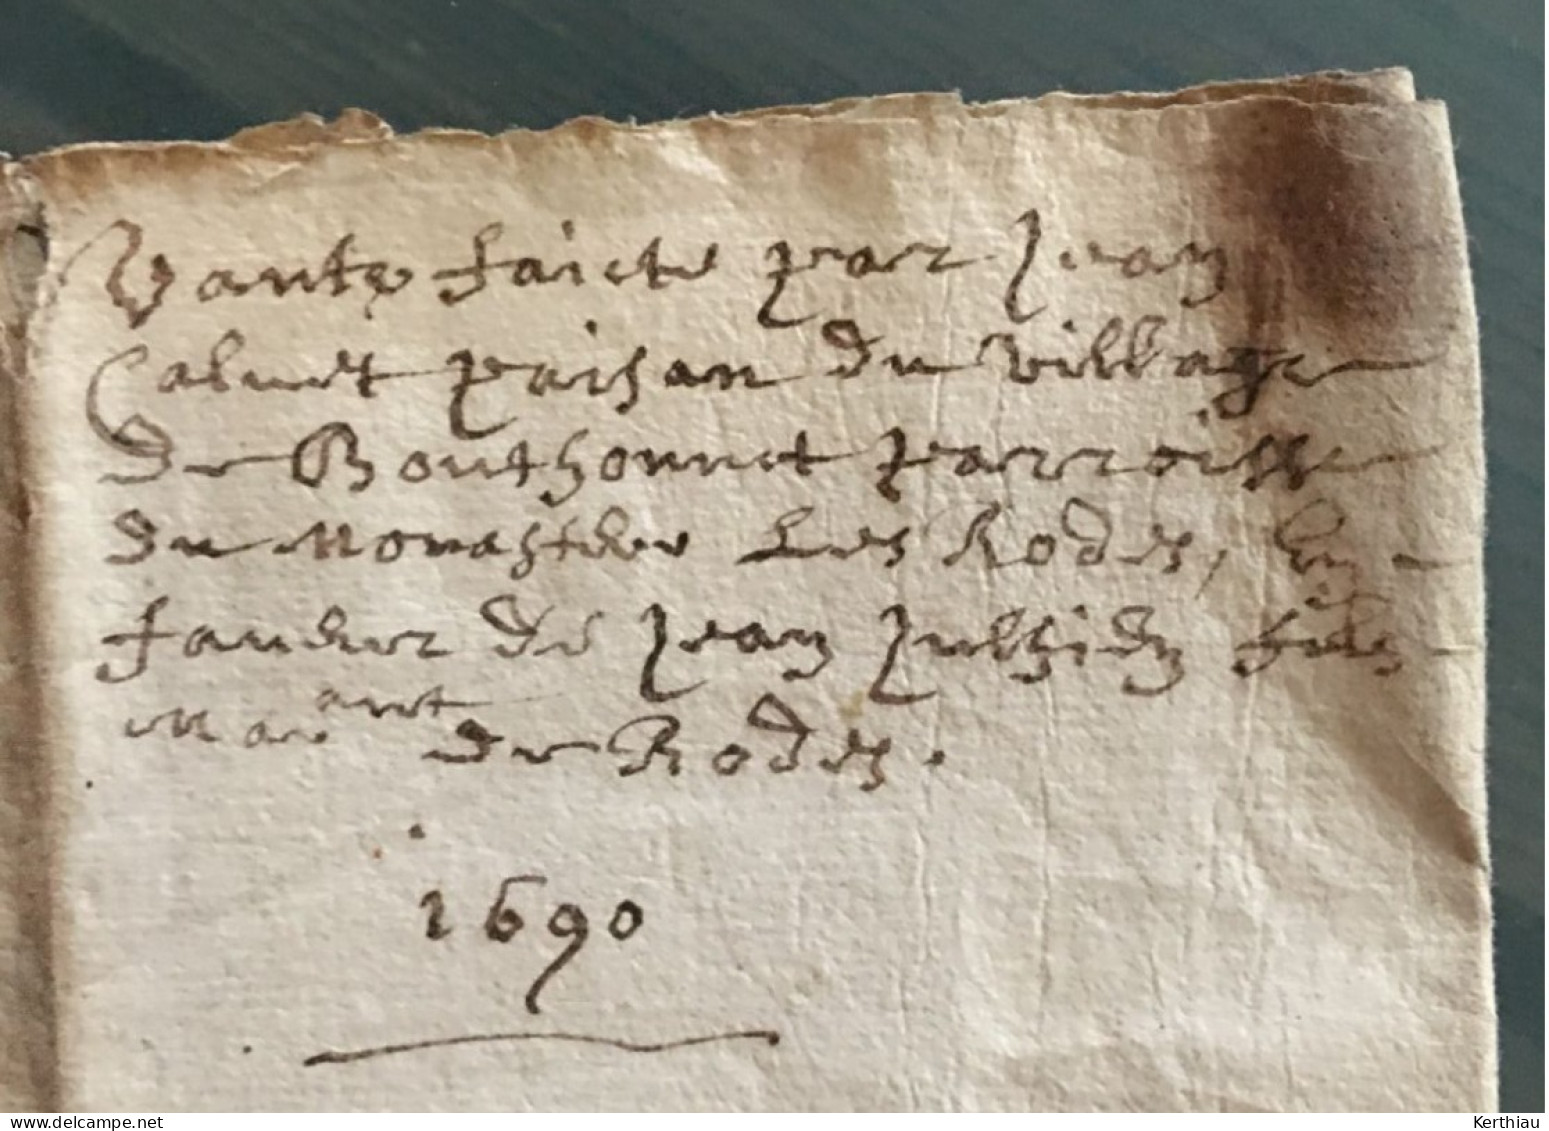 Vante faicte par Jean
Calmet paisan du village
de Bouthonnet parroisse
du Monastere Les Rodes, En
faveur de Jean Julhien fils
Mar ant de Rodes.
1690
Kerthiau